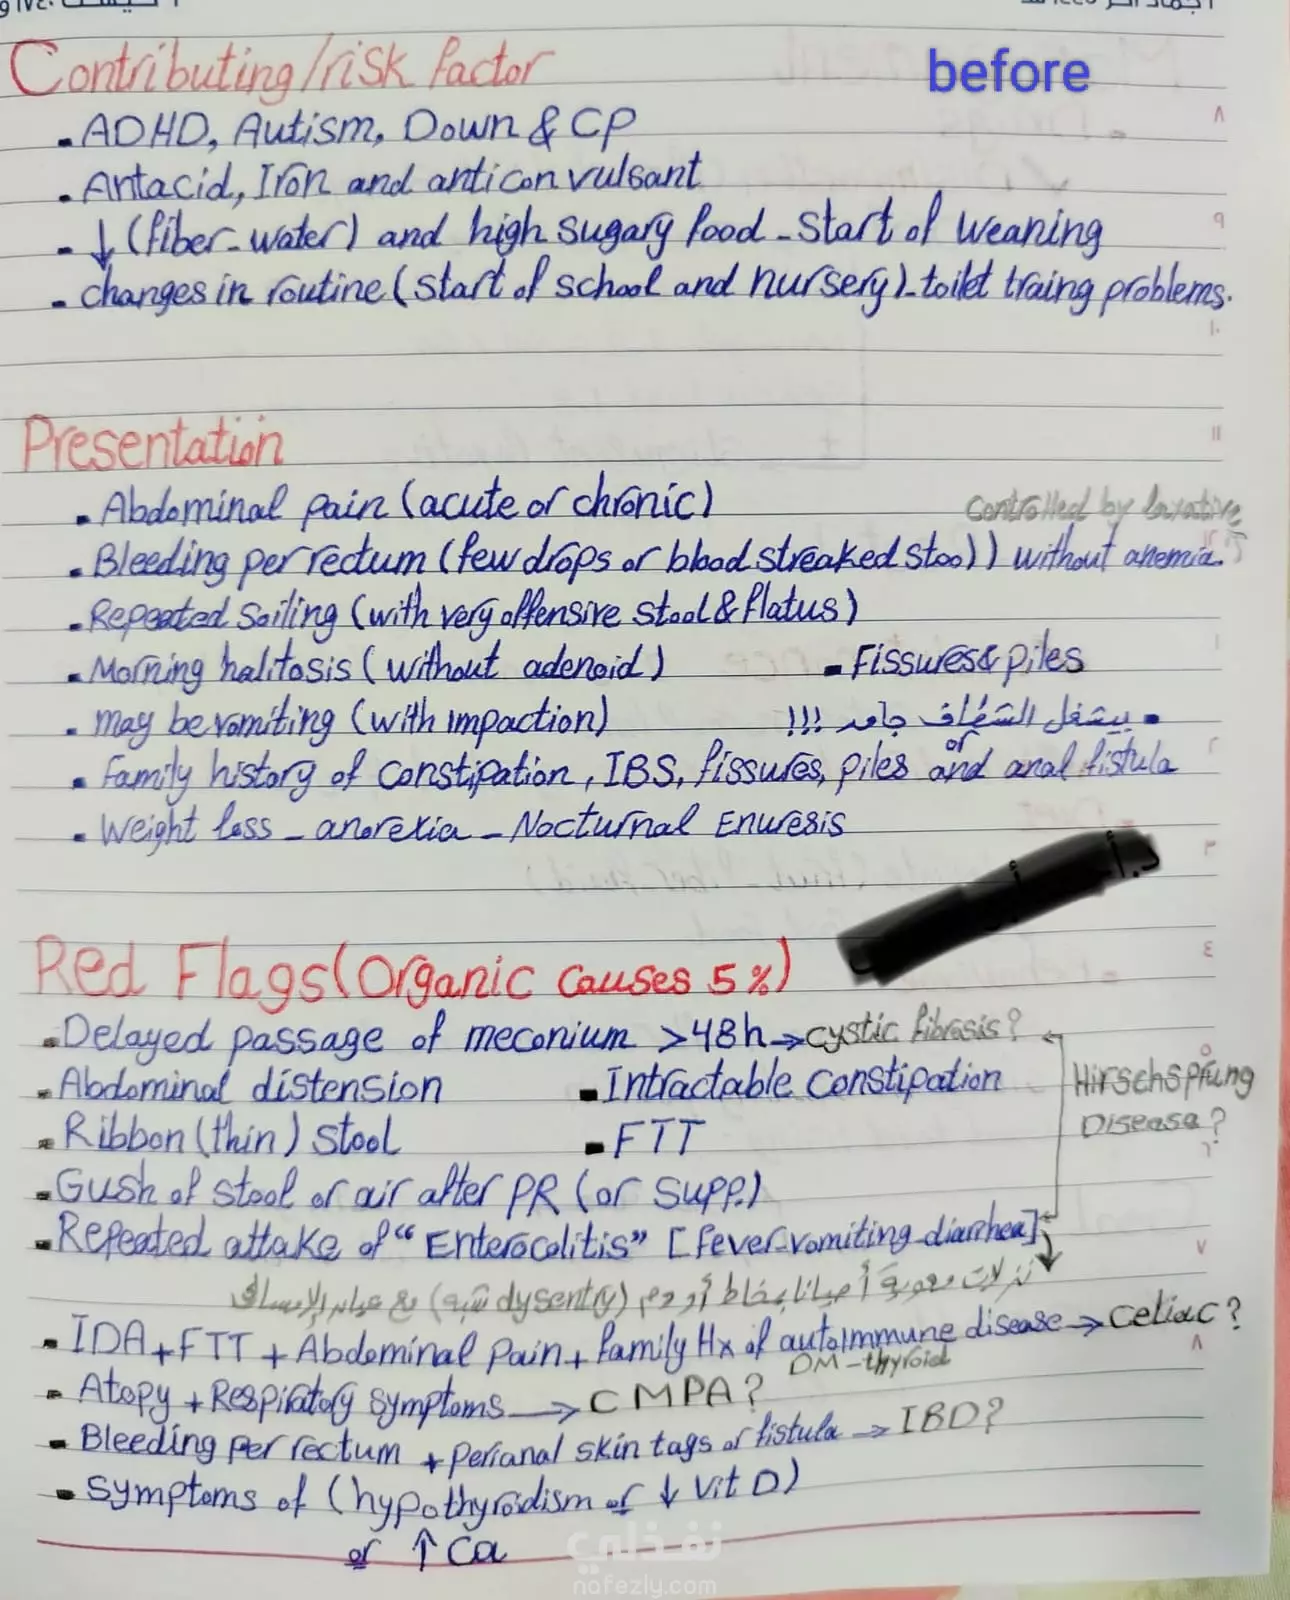 before
Contributing/risk factor
- ADHD, Autism, Down & CP
- Antacid, Iron and anticonvulsant
- ↓ (fiber-water) and high sugary food - start of weaning
- changes in routine (start of school and nursery)-toilet traing problems.
Presentation
- Abdominal pain (acute or chronic)
controlled by laxative
- Bleeding per rectum (few drops or blood streaked stool) without anemia.
- Repeated Soiling (with very offensive stool & flatus)
- Morning halitosis (without adenoid) - Fissures & piles
- may be vomiting (with impaction) - بيشغل الشفاف جامد !!!
or
- family history of constipation, IBS, fissures, piles and anal fistula
- Weight loss - anorexia - Nocturnal Enuresis
Red Flags (Organic causes 5%)
- Delayed passage of meconium >48h → cystic fibrosis?
- Abdominal distension - Intractable constipation Hirschsprung
Disease?
- Ribbon (thin) stool - FTT
- Gush of stool or air after PR (or supp.)
- Repeated attake of "Enterocolitis" [fever-vomiting-diarrhea]
نزلات معوية أحيانا بمخاط أو دم (شبه dysentry) مع عيام الإمساك
- IDA + FTT + Abdominal Pain + family Hx of autoimmune disease → celiac?
DM-thyroid
- Atopy + Respiratory symptoms → CMPA?
- Bleeding per rectum + perianal skin tags or fistula → IBD?
- symptoms of (hypothyroidism or ↓ Vit D)
or ↑ Ca
نفذلي
nafezly.com